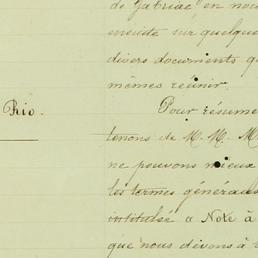 de Gabriac, en nou
ensuite sur quelque
divers documents q
mêmes réunir.
Rio.
Pour résume
tenons de M. M. M
ne pouvons mieux
les termes générau
intitulée « Note à
que nous devons à